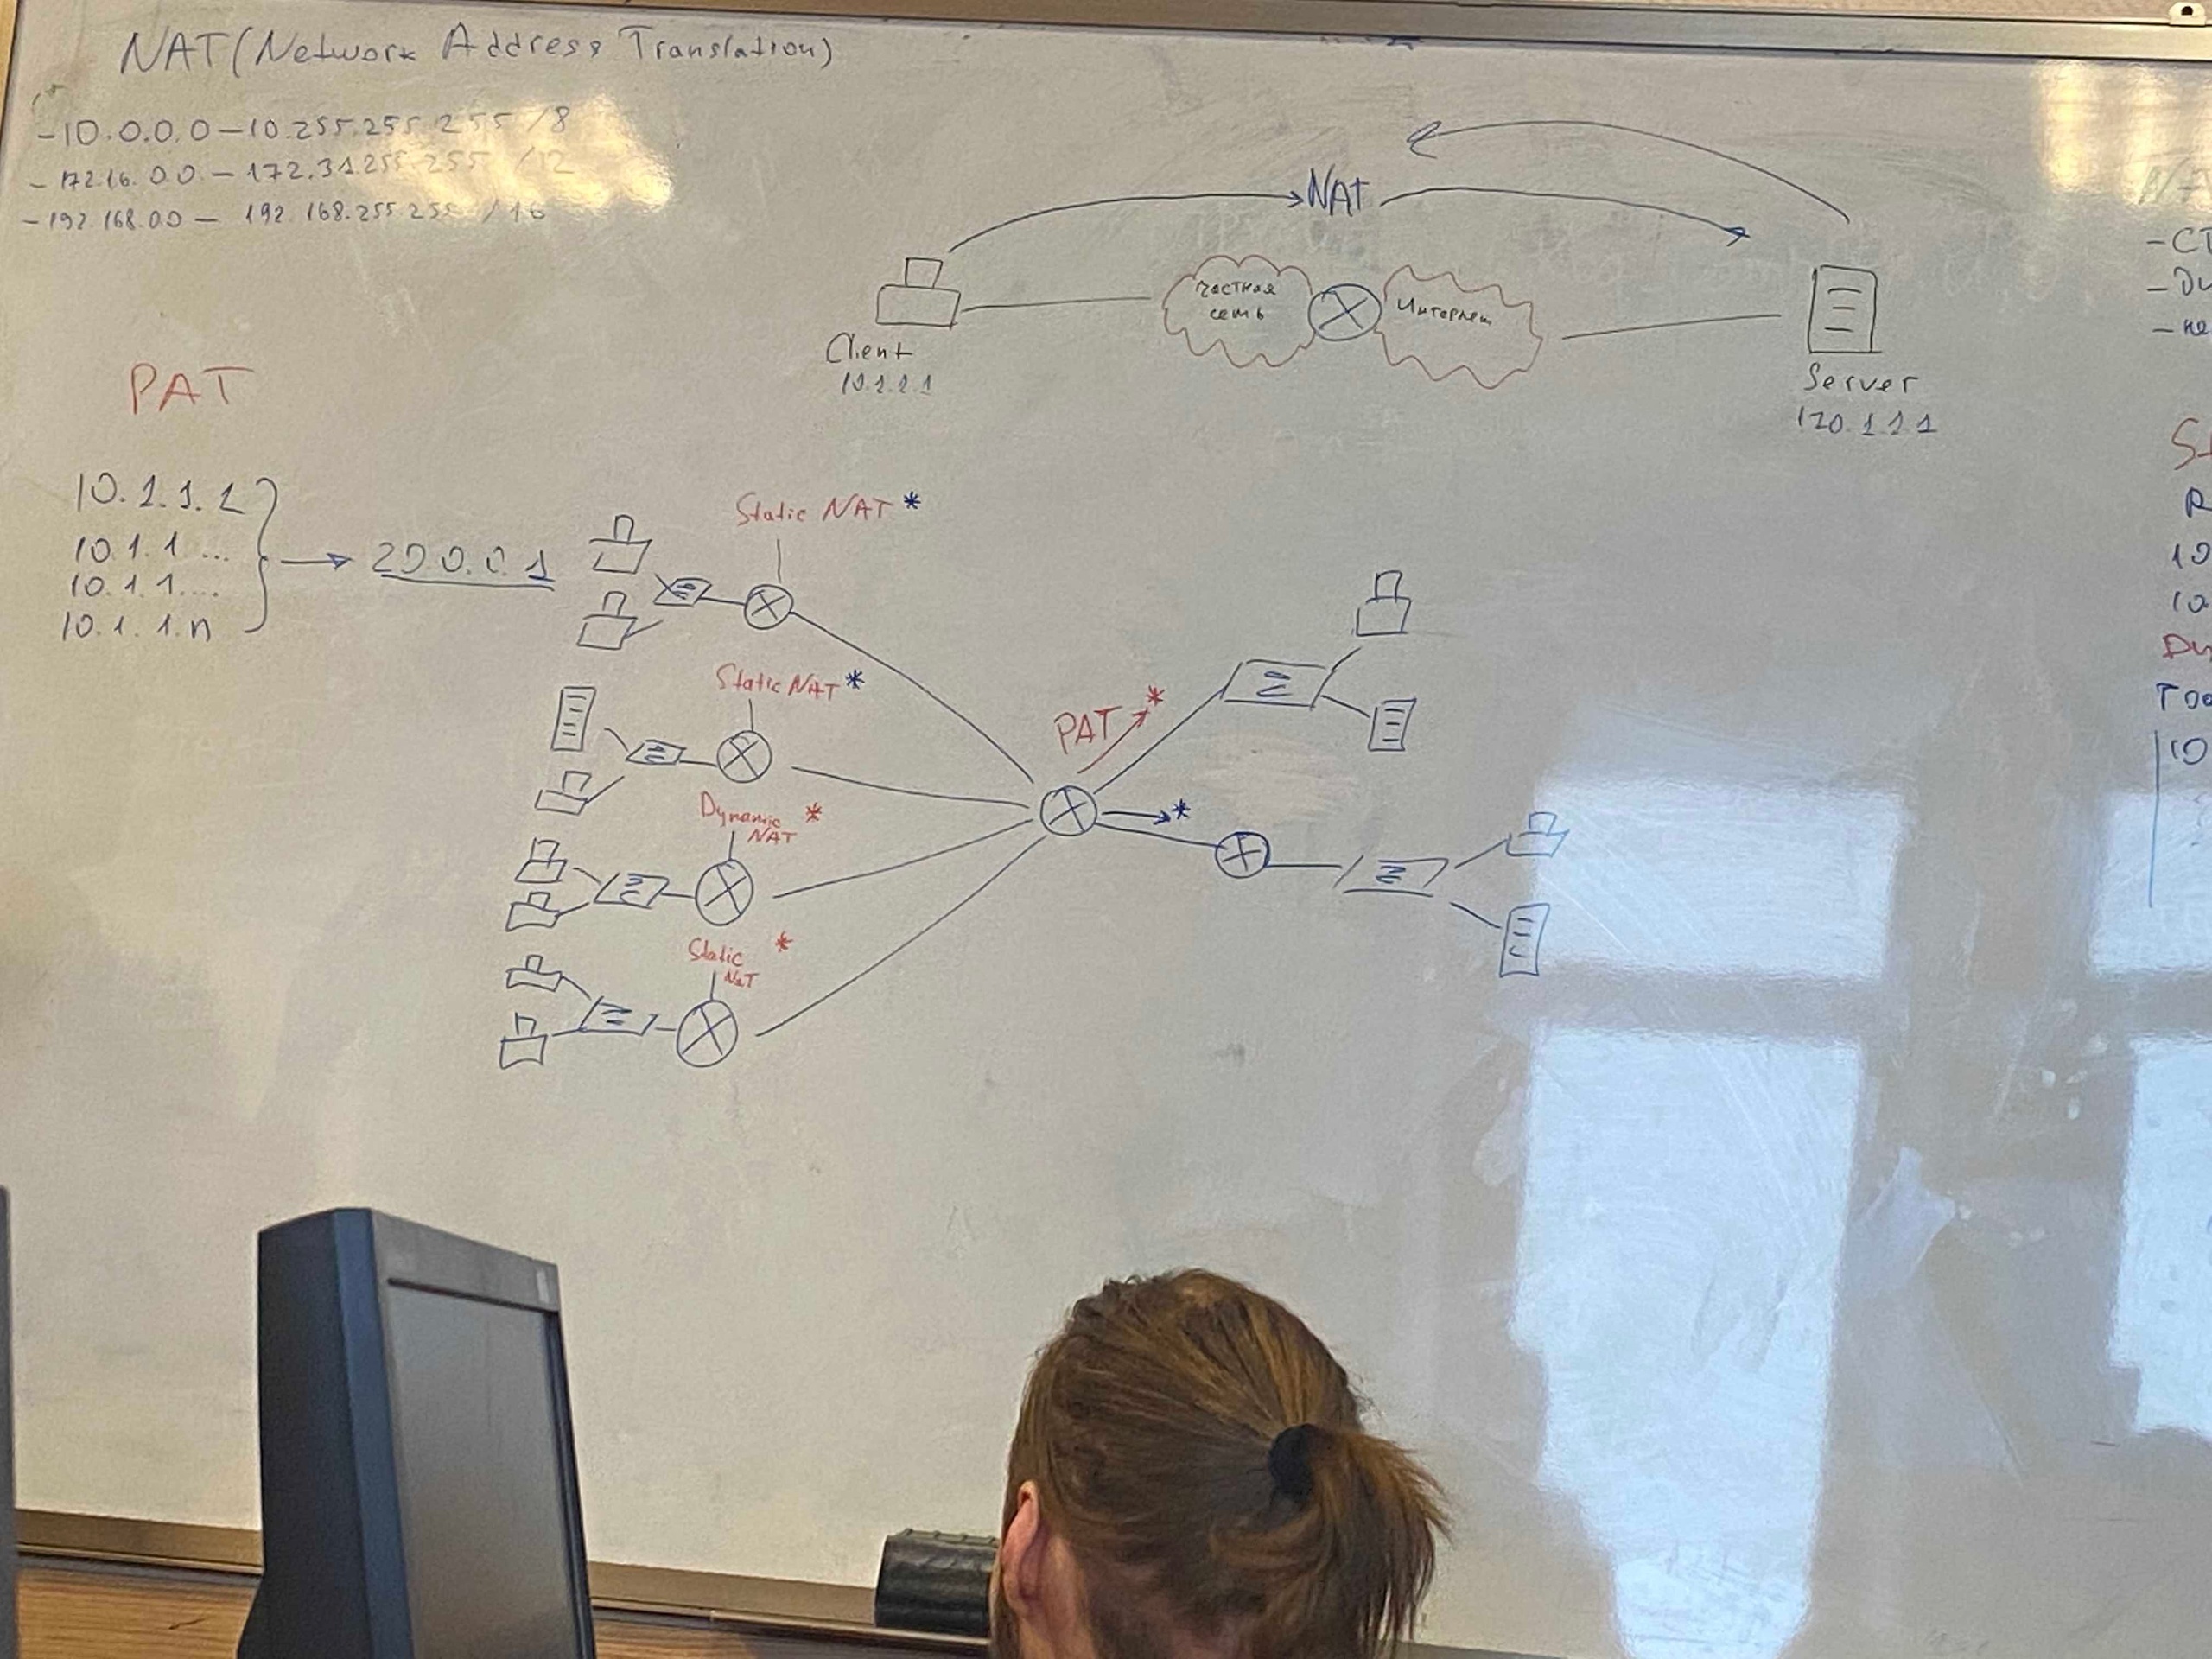 NAT (Network Address Translation)
-10.0.0.0 – 10.255.255.255 /8
- 172.16.0.0. – 172.31.255.255 /12
- 192.168.0.0 – 192.168.255.255 /16
NAT
Частная
сеть
Интернет
Client
10.1.1.1
Server
170.1.1.1
PAT
10.1.1.1
10.1.1...
10.1.1....
10.1.1.n
200.0.1
Static NAT *
Static NAT *
Dynamic *
NAT
Static *
NAT
PAT *
*
- СТ
- Ди
- не
St
R
10
10
Dy
10